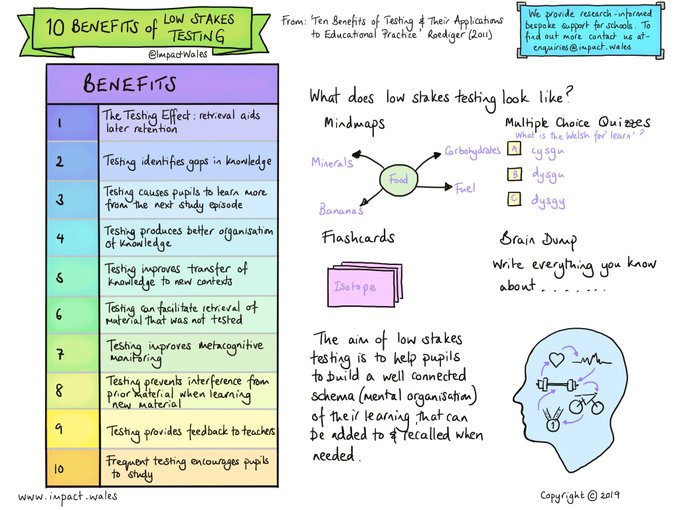 10 BENEFITS of LOW STAKES
TESTING
@ImpactWales
From: 'Ten Benefits of Testing & Their Applications
to Educational Practice' Roediger (2011)
We provide research-informed
bespoke support for schools. To
find out more contact us at-
enquiries@impact.wales
BENEFITS
1 The Testing Effect: retrieval aids
later retention
2 Testing identifies gaps in knowledge
3 Testing causes pupils to learn more
from the next study episode
4 Testing produces better organisation
of knowledge
5 Testing improves transfer of
knowledge to new contexts
6 Testing can facilitate retrieval of
material that was not tested
7 Testing improves metacognitive
monitoring
8 Testing prevents interference from
prior material when learning
new material
9 Testing provides feedback to teachers
10 Frequent testing encourages pupils
to study
What does low stakes testing look like?
Mindmaps
Minerals
Carbohydrates
Food
Fuel
Bananas
Multiple Choice Quizzes
What is the Welsh for 'learn'?
A cysgu
B dysgu
C dysgy
Flashcards
Isotope
Brain Dump
Write everything you know
about .......
The aim of low stakes
testing is to help pupils
to build a well connected
schema (mental organisation)
of their learning that can
be added to & recalled when
needed.
1
www.impact.wales
Copyright © 2019